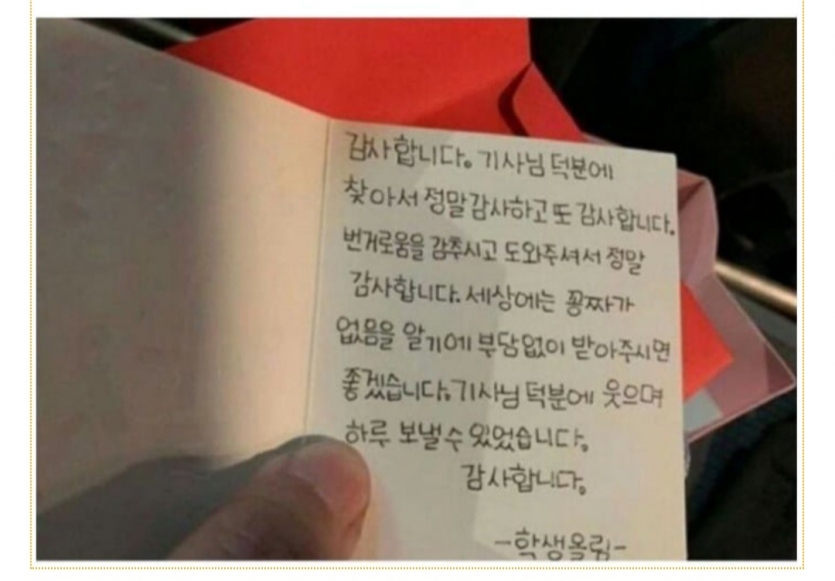 감사합니다. 기사님 덕분에
찾아서 정말 감사하고 또 감사합니다.
번거로움을 감추시고 도와주셔서 정말
감사합니다. 세상에는 꽁짜가
없음을 알기에 부담없이 받아주시면
좋겠습니다. 기사님 덕분에 웃으며
하루 보낼 수 있었습니다.
감사합니다.
-학생올림-